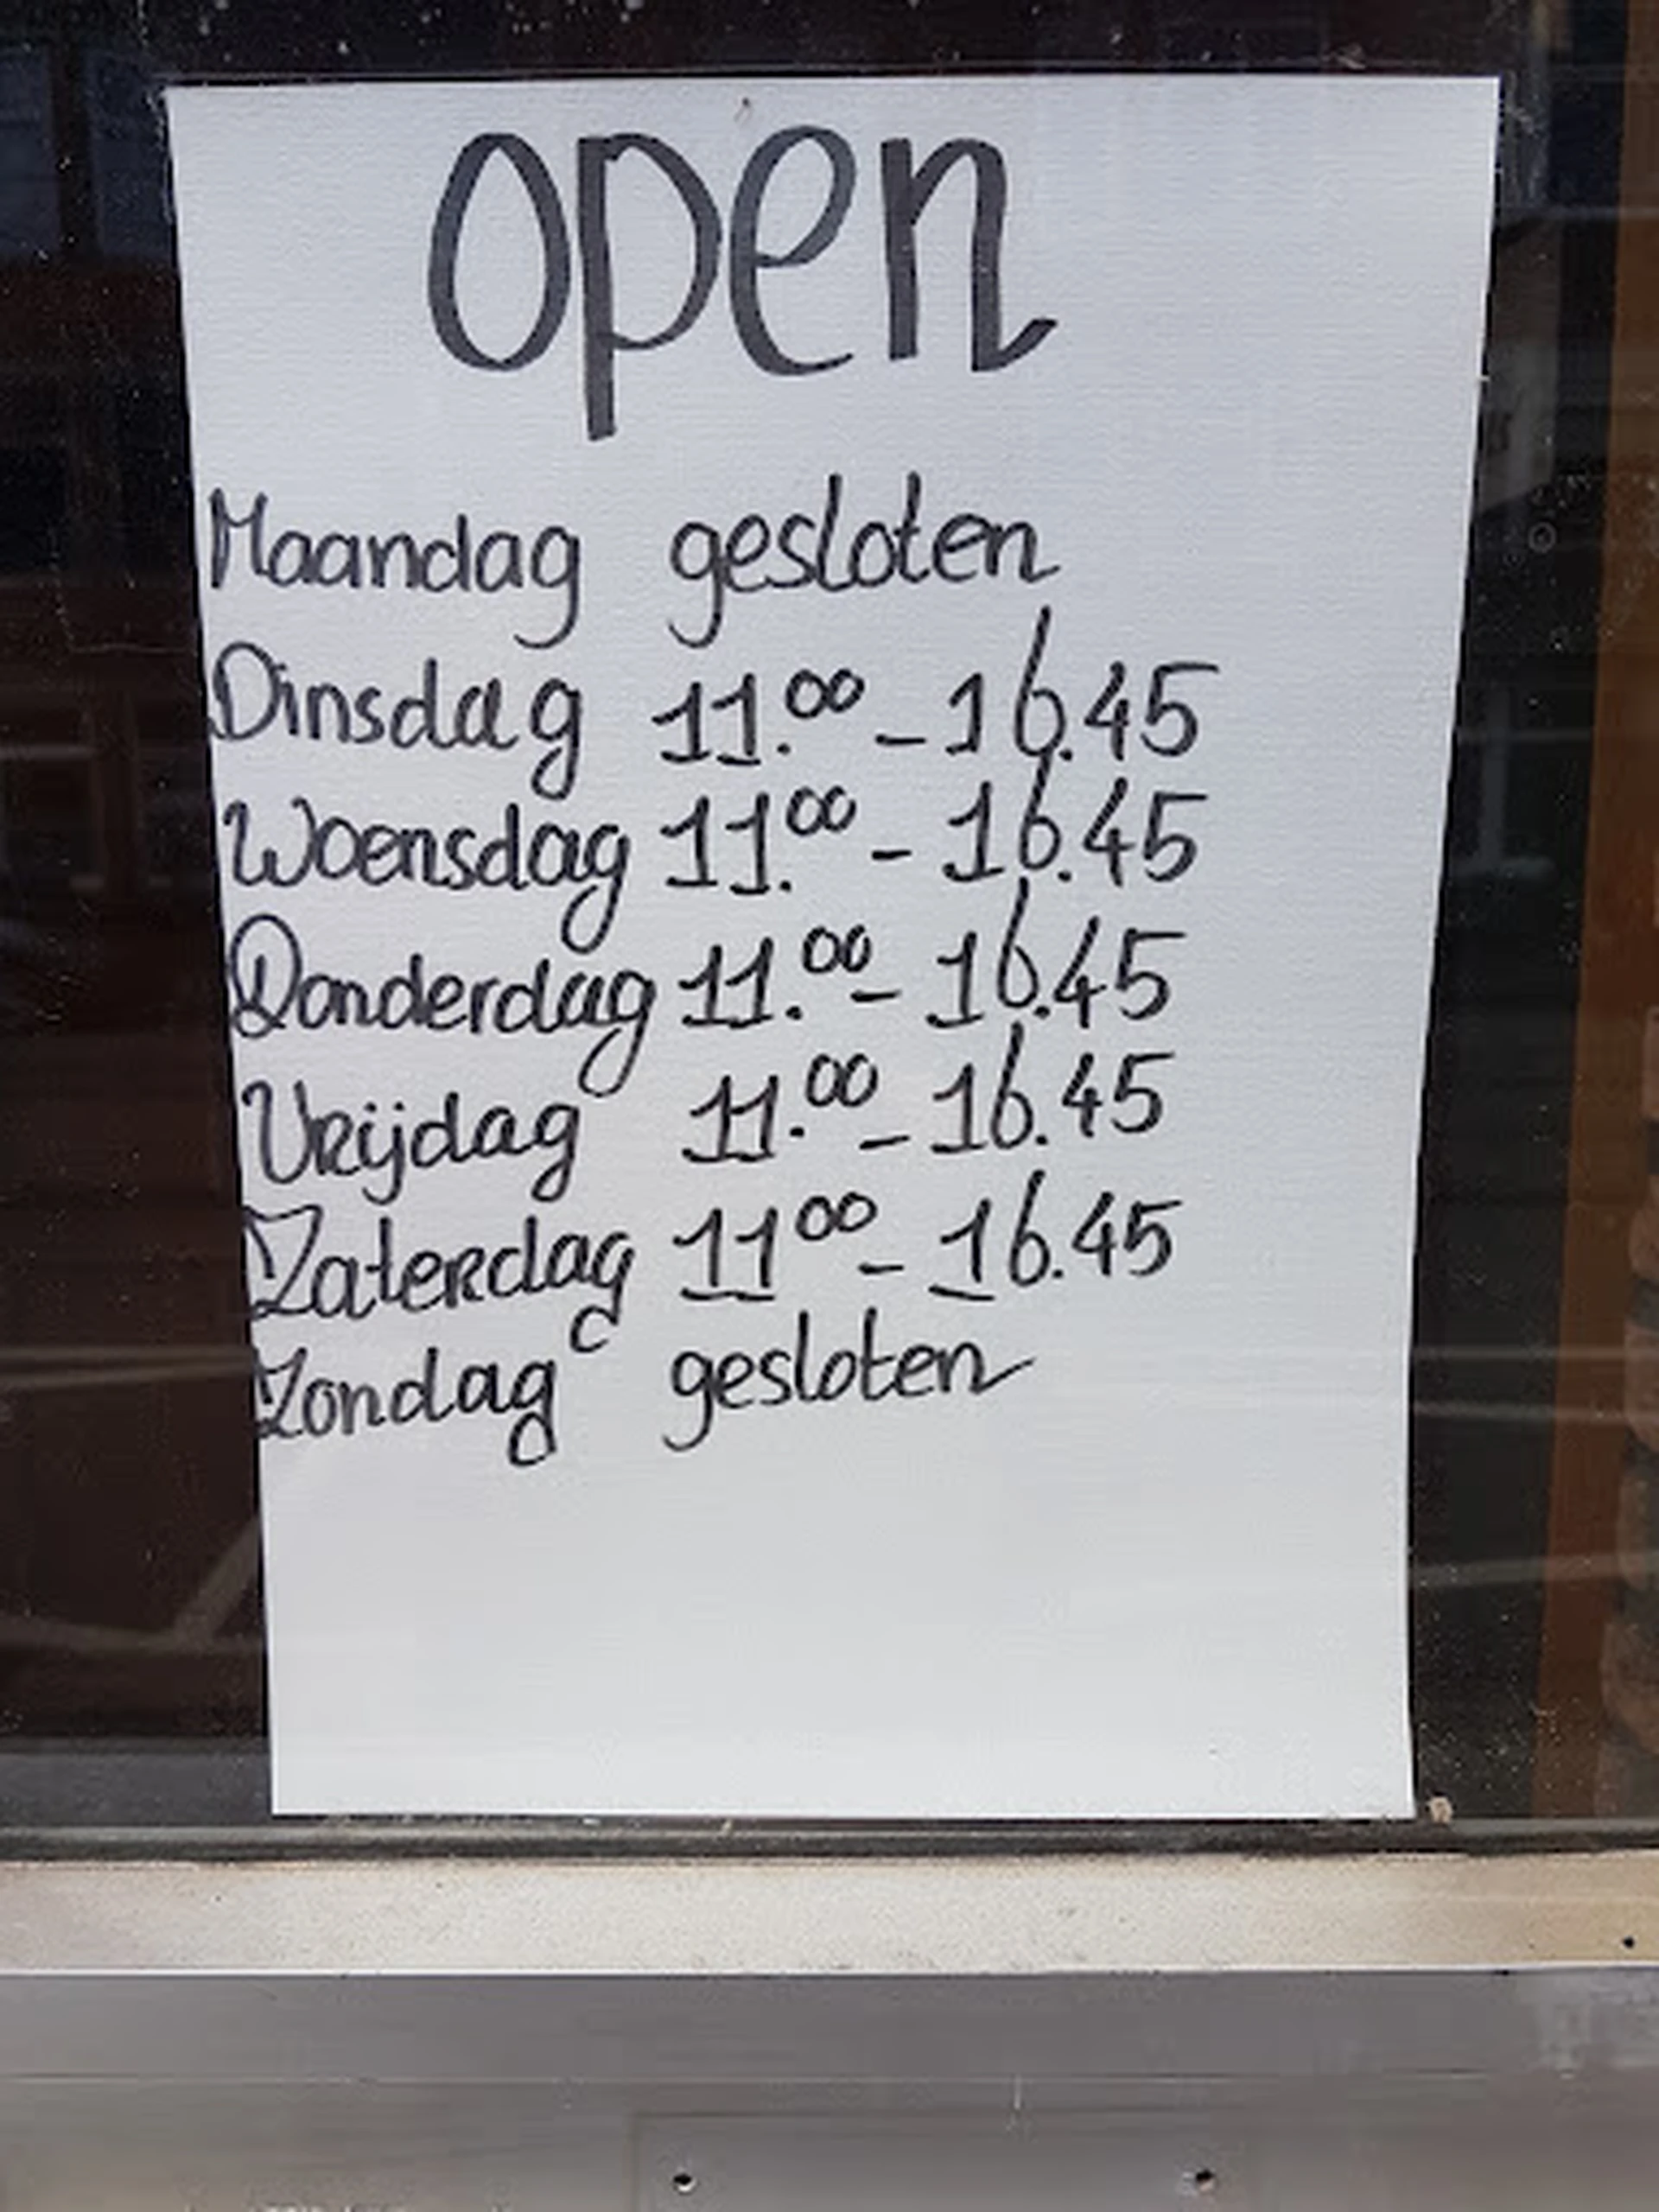 open
Maandag gesloten
Dinsdag 11.00 - 16.45
Woensdag 11.00 - 16.45
Donderdag 11.00 - 16.45
Vrijdag 11.00 - 16.45
Zaterdag 11 00 - 16.45
Zondag gesloten